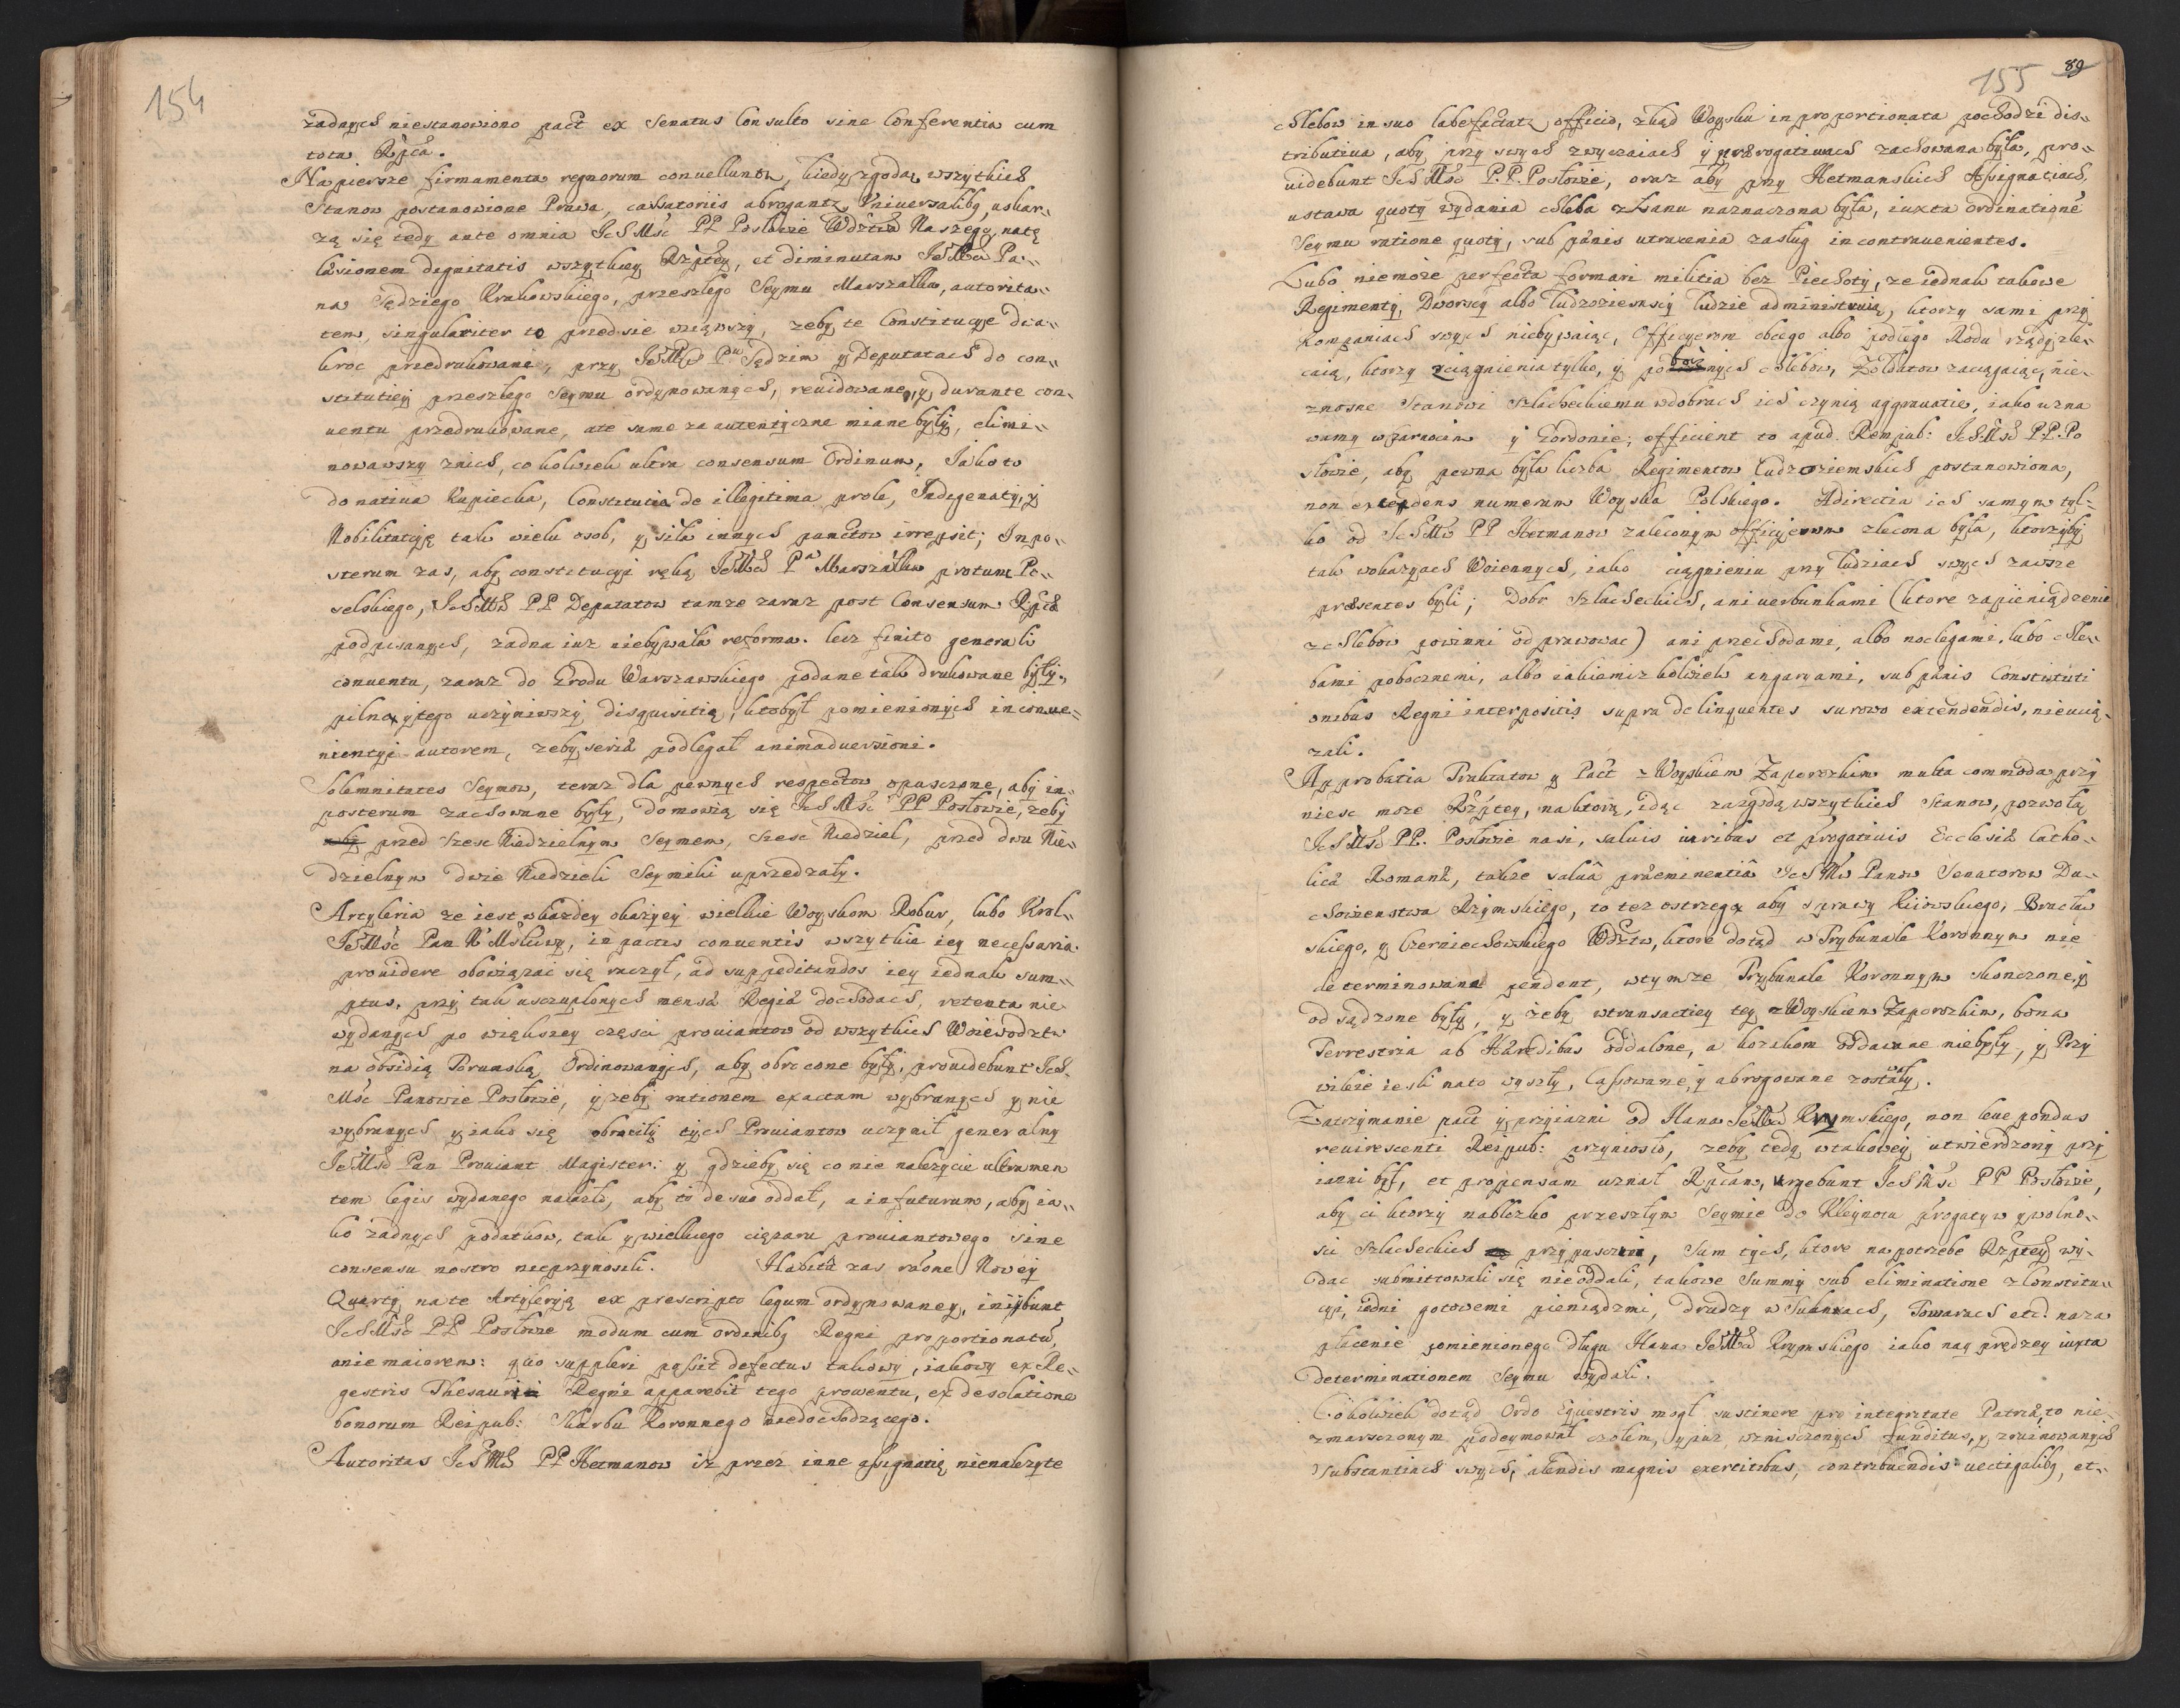 154
zadnych niestanowiono pact ex Senatus Consulto sine Conferentia cum
tota Rpca.
Napiersze firmamenta regnorum conuelluntr, kiedy zgodą wszytkich
Stanow postanowione Prawa, cassatoriis abrogantr Vniuersalibq, uskar-
zą się tedy ante omnia IchMsc PP Posłowie Wdztwa Naszego, natę
laesionem dignitatis wszytkiey Rzptey, et diminutam IeMci Pa-
na Sędziego Krakowskiego, przeszłego Seymu Marszałka, autorita-
tem, singulariter to przedsie wziąwszy, zeby te Constitucye dwa-
kroc przedrukowane, przy IeMci Pu Sędzim y Deputatach do con-
stitutiey przeszłego Seymu ordynowanych, reuidowane, y durante con-
uentu przedrukowane, ate same za autentyczne miane były, elimi-
nowawszy znich, co kolwiek ultra consensum Ordinum, Iako to
donatiua Kupiecka, Constitutia de illegitima prole, Indigenaty, y
Nobilitatyę tak wielu osob, y siła innych punctow irrepsit; Inpo-
sterum zas, aby constitucyi ręką IeMci Pa Marszałka protunc Po-
selskiego, IchMci PP Deputatow tamze zaraz post Consensum Rpcae
podpisanych, zadna iuz niebywała reforma. lecz finito generali
conuentu, zaraz do Grodu Warszawskiego podane tak drukowane były,
pilną y tego uczyniwszy disquisitią, ktobył pomienionych inconue-
nientyi autorem, zeby seriae podlegał animaduersioni.
Solemnitates Seymow, teraz dla pewnych respectow opusczone, aby in-
posterum zachowane były, domowią się IchMsc PP Posłowie, zeby
przed Szesc Niedzielnym Seymem, Szesc Niedziel, przed dwu Nie-
dzielnym dwie Niedzieli Seymiki uprzedzały.
Artyleria ze iest wkazdey okazyey wielkie Woyskom Robur, lubo Krol
IeMsc Pan N Msciwy, in pactis conuentis wszytkie iey necessaria
prouidere obowiązac się raczył, ad suppeditandos iey iednak sum-
ptus, przy tak usczuplonych mensae Regiae dochodach, retenta nie
wydanych po większey częsci prouiantow od wszytkich Woiewodztw
na obsidią Torunską Ordinowanych, aby obrocone były, prouidebunt Ich
Msc Panowie Posłowie, y zeby rationem exactam wybranych y nie
wybranych y iako się obrociły tych Prouiantow uczynił generalny
IeMsc Pan Prouiant Magister: y gdzieby się co nie nalezycie ultra men
tem legis wydanego nalazło, aby to de suo oddał, a in futurum, aby ia-
ko zadnych podatkow, tak y wielkiego cięzaru prouiantowego sine
consensu nostro nieprzynosili. Habita zas raone Nowey
Quarty na te Artyleryą ex prescripto legum ordynowaney, inijbunt
IchMsc PP Posłowie modum cum ordinibq Regni proportionatū,
anie maiorem: quo suppleri possit defectus takowy, iakowy ex Re-
gestris Thesauri Regni apparebit tego prowentu, ex desolatione
bonorum Reipub: Skarbu Koronnego niedochodzącego.
Autoritas IchMci PP Hetmanow iz przez inne assignatią nienalezyte

155 89
chlebow in suo labefactatr officio, zkąd Woysku inproportionata pochodzi dis-
tributiua, aby przy swych zwyczaiach y praerogatiwach zachowana była, pro-
uidebunt IchMsc P.P. Posłowie, oraz aby przy Hetmanskich Assignatiach,
ustawa quoty wydania chleba złanu naznaczona była, iuxta ordinationē
Seymu ratione quoty, sub paenis utracenia zasług in contrauenientes.
Lubo niemoze perfecta formari militia bez Piechoty, ze iednak takowe
Regimenty, Dworscy albo Cudzoziemscy ludzie administruią, ktorzy sami przy
Kompaniach swych niebywaiąc, Officyerom obcego albo podłego Rodu rządy zle-
caią, ktorzy zciągnienia tylko, y pobocznych chlebow, Zoldatow zaciągaiąc, nie-
znosne Stanowi Szlacheckiemu wdobrach ich czynią aggrauatie, iako uzna
wamy wżarnocin y Gordonie; efficient to apud Rempub: IchMsc P.P. Po
słowie, aby pewna była liczba Regimentow Cudzoziemskich postanowiona,
non excedens numerum Woyska Polskiego. A directia ich samym tyl-
ko od IchMci PP Hetmanow zaleconym officyerom zlecona była, ktorzyby
tak wokazyach Woiennych, iako ciągnieniu przy ludziach swych zawsze
praesentes byli; Dobr Szlacheckich, ani uerbunkami (ktore zapieniądzenie
zchlebow powinni odprawowac) ani przechodami, albo noclegami, lubo chle-
bami pobocznemi, albo iakiemiz kolwiek angaryami, sub paenis Constituti
onibus Regni interpositis supra delinquentes surowo extendendis, nieucią-
zali.
Approbatia Traktatow y Pact z Woyskiem Zaporozkim multa commoda przy
niesc moze Rzptey, naktorą, idąc zazgodą wszytkich Stanow, pozwolą
IchMsc PP. Posłowie nasi, saluis iuribus et progatiuis Ecclesiae Catho-
licae Romanae, takze saluâ praeeminentiâ IchMci Panow Senatorow Du-
chowienstwa Rzymskiego, to tez ostrzegą aby sprawy Kiiowskiego, Bracław
skiego, y Czerniechowskiego Wdztw, ktore dotąd w Trybunale Koronnym nie
determinowane pendent, wtymze Trybunale Koronnym skonczone, y
odsądzone były, y zeby wtransactiey tey z Woyskiem Zaporozkim, bona
Terrestria ab Haeredibus oddalone, a kozakom oddawane niebyły, y Przy
wileie iesli nato wyszły, Cassowane, y abrogowane zostały.
Zatrzymanie pact y przyiazni od Hana IeMci Krymskiego, non leue pondus
reuirescenti Reipub: przyniosło, zeby tedy wtakowey utwierdzony przy
iazni był, et propensam uznał Rpcam, urgebunt IchMsc PP Posłowie,
aby ci ktorzy nablizko przeszłym Seymie do Kleynotu progatyw y wolno-
sci Szlacheckich przypusczeni, Sum tych, ktore na potrzebe Rzptey wy-
dac submittowali się nieoddali, takowe Summy sub eliminatione z Constitu-
cyi, iedni gotowemi pieniądzmi, drudzy w Suknach, Towarach etc: naza
płacenie pomienionego długu Hana IeMci Krymskiego iako nay prędzey iuxta
determinationem Seymu wydali.
Cokolwiek dotąd Ordo Equestris mogł sustinere pro integritate Patriae, to nie-
zmarsczonym podeymował czołem, y iuz wznisczonych funditus, y zruinowanych
Substantiach swych, alendis magnis exercitibus, contribuendis uectigalibq, et-